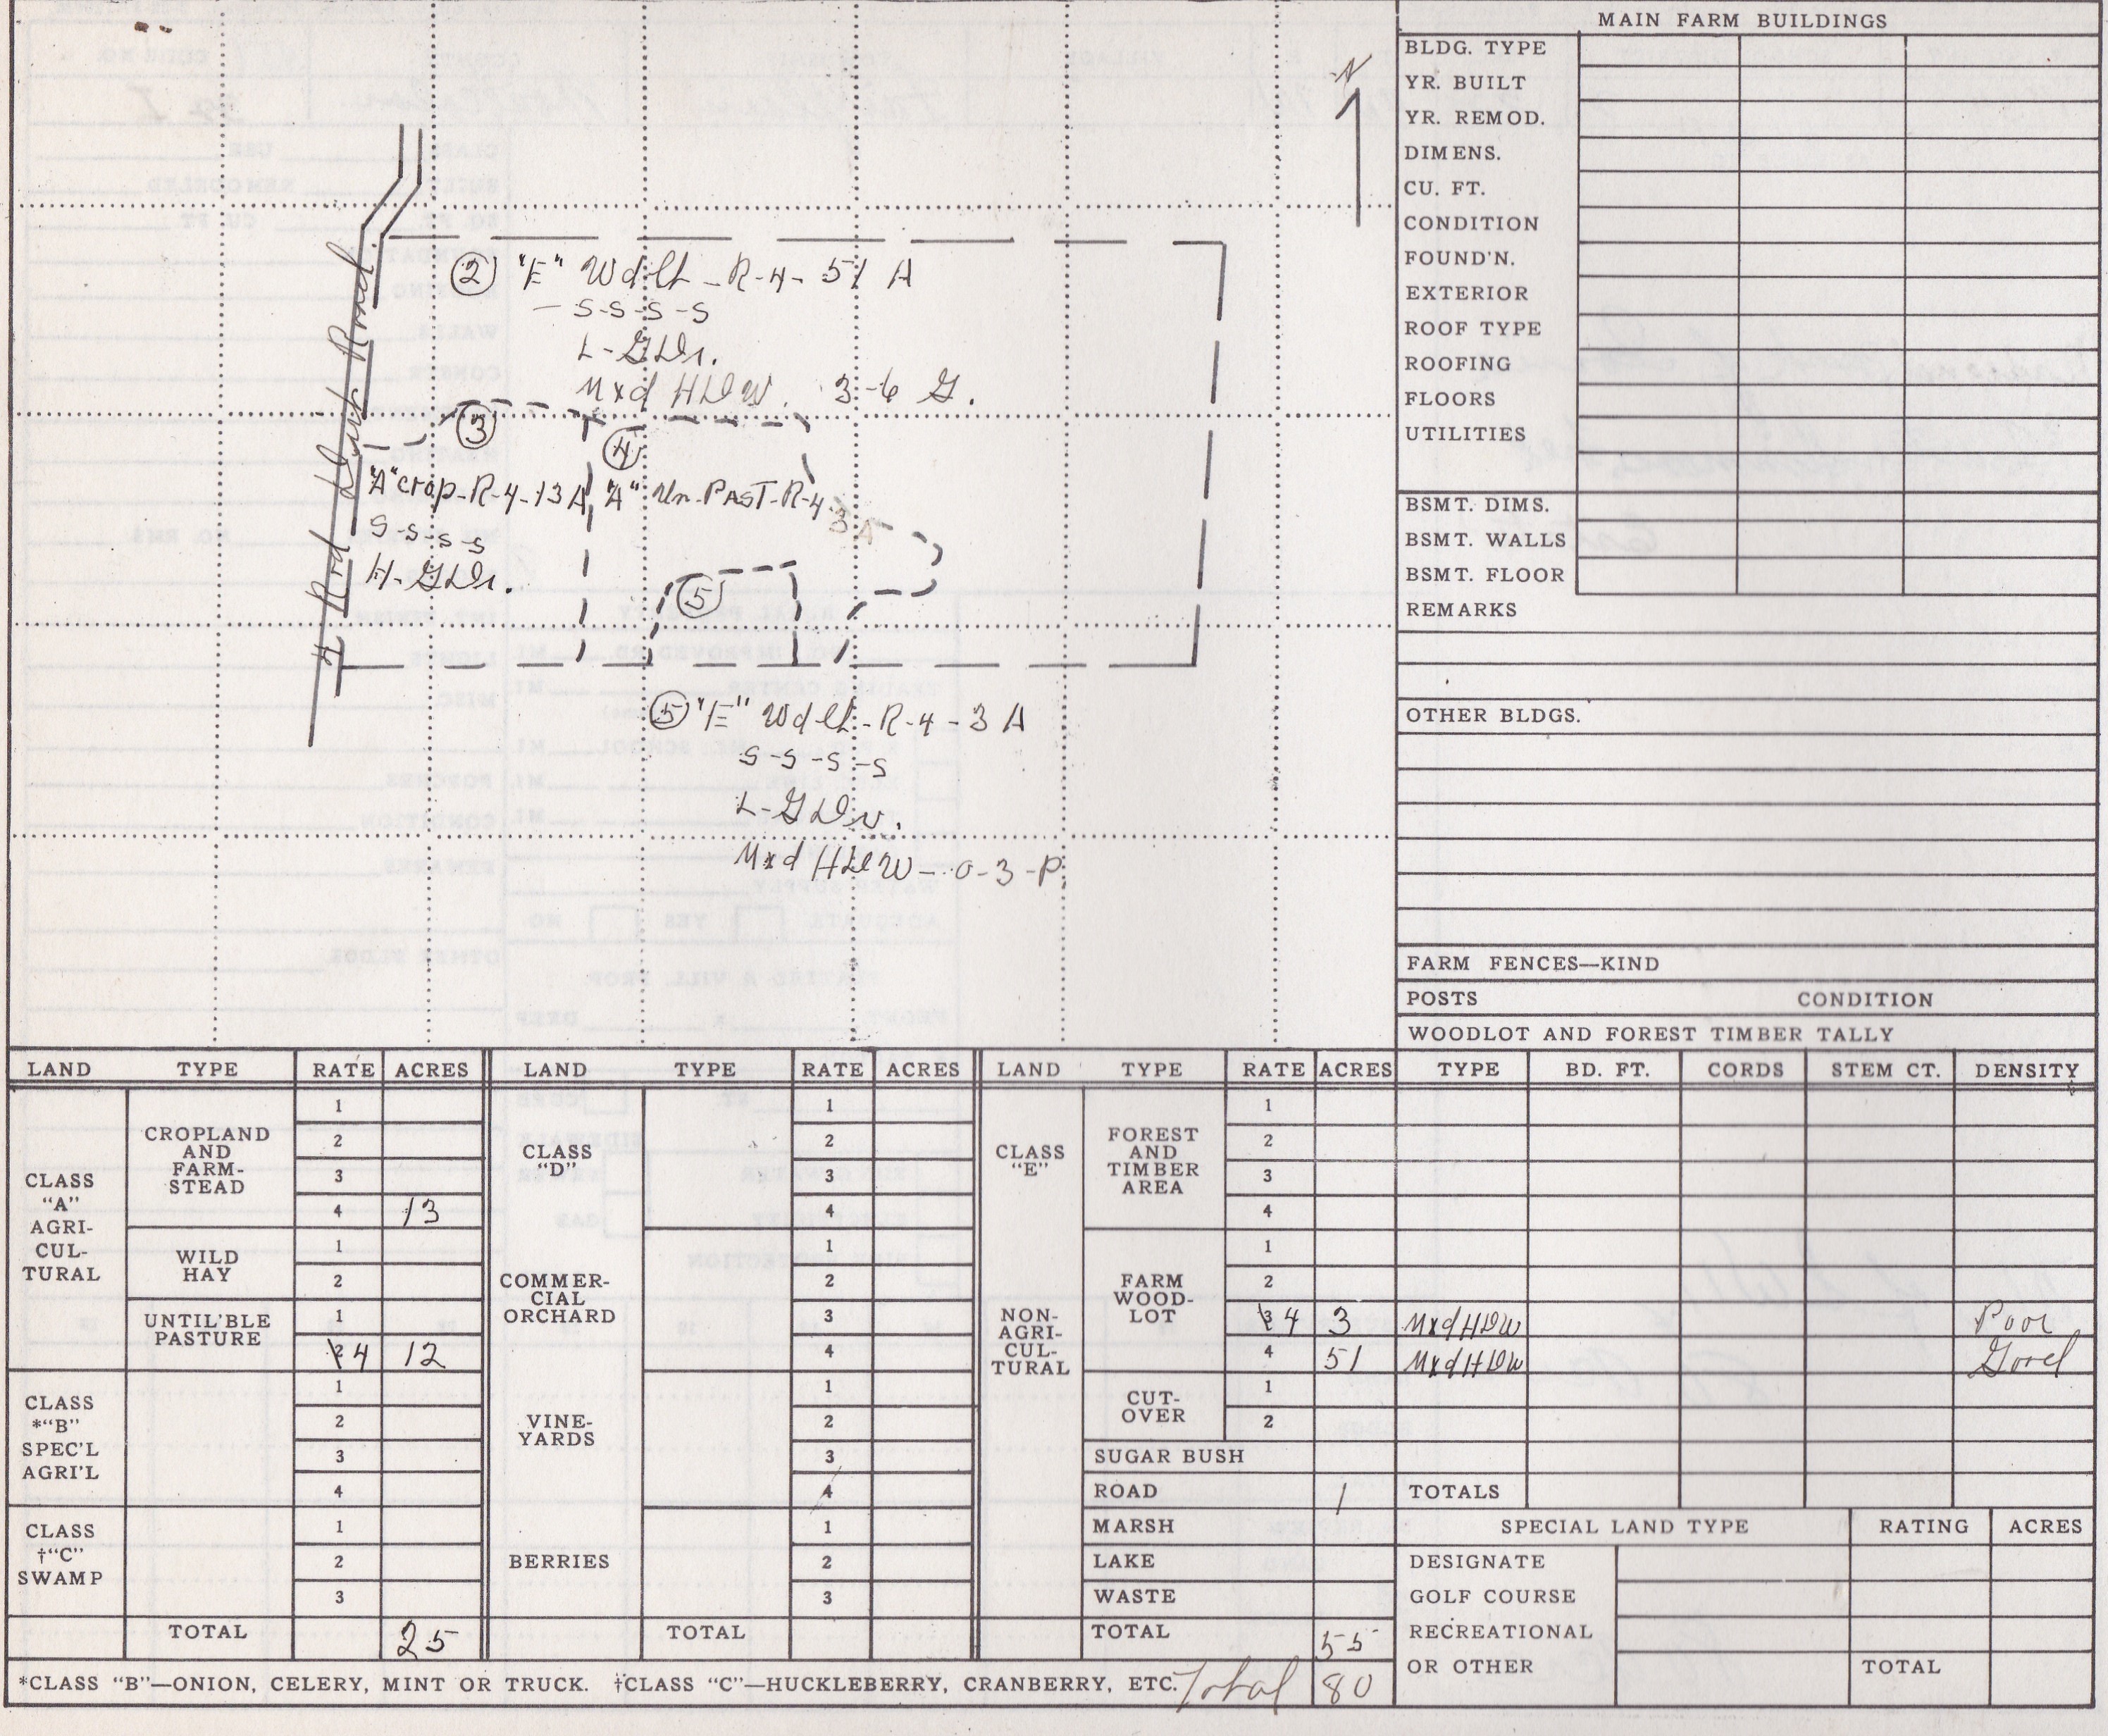 N
② "E" Wdlt - R-4 - 51 A
- S-S-S-S
L-GLDr.
Mxd HDW. 3-6 G.
③
④
"A" crop-R-4-13 A
"A" Un-PAST-R-4
3 A
S-S-S-S
H-GLDr.
⑤
4 Rod Dirt Road.
⑤ "E" Wdlt - R-4 - 3 A
S-S-S-S
L-GLDr.
Mxd HDW - 0-3-P.
MAIN FARM BUILDINGS
BLDG. TYPE
YR. BUILT
YR. REMOD.
DIMENS.
CU. FT.
CONDITION
FOUND'N.
EXTERIOR
ROOF TYPE
ROOFING
FLOORS
UTILITIES
BSMT. DIMS.
BSMT. WALLS
BSMT. FLOOR
REMARKS
OTHER BLDGS.
FARM FENCES—KIND
POSTS CONDITION
WOODLOT AND FOREST TIMBER TALLY
LAND TYPE RATE ACRES LAND TYPE RATE ACRES LAND TYPE RATE ACRES TYPE BD. FT. CORDS STEM CT. DENSITY
CLASS
"A"
AGRI-
CUL-
TURAL
CROPLAND
AND
FARM-
STEAD
1
2
3
4 13
WILD
HAY
1
2
UNTIL'BLE
PASTURE
1
2 4 12
CLASS
*"B"
SPEC'L
AGRI'L
1
2
3
4
CLASS
†"C"
SWAMP
1
2
3
TOTAL 25
CLASS
"D"
1
2
3
4
COMMER-
CIAL
ORCHARD
1
2
3
4
VINE-
YARDS
1
2
3
4
BERRIES
1
2
3
TOTAL
CLASS
"E"
NON-
AGRI-
CUL-
TURAL
FOREST
AND
TIMBER
AREA
1
2
3
4
FARM
WOOD-
LOT
1
2
3 4 3 Mxd HDW Poor
4 51 Mxd HDW Good
CUT-
OVER
1
2
SUGAR BUSH
ROAD 1
MARSH
LAKE
WASTE
TOTAL 55
TOTALS
SPECIAL LAND TYPE RATING ACRES
DESIGNATE
GOLF COURSE
RECREATIONAL
OR OTHER TOTAL
*CLASS "B"—ONION, CELERY, MINT OR TRUCK. †CLASS "C"—HUCKLEBERRY, CRANBERRY, ETC. Total 80